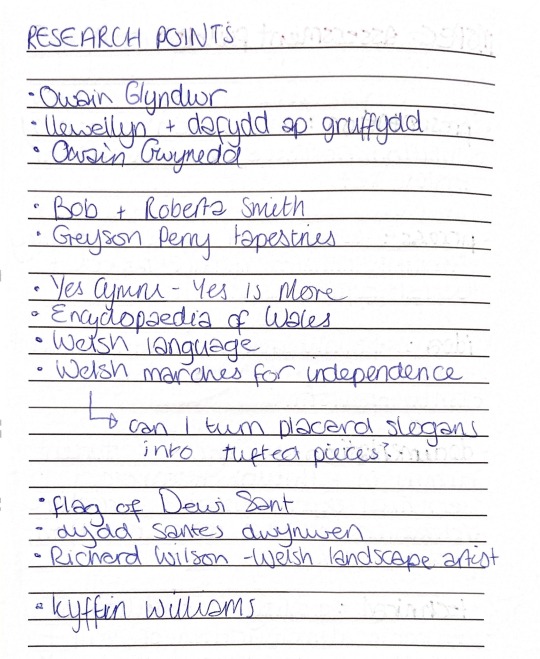 RESEARCH POINTS
• Owain Glyndwr
• llewellyn + dafydd ap gruffydd
• Owain Gwynedd
• Bob + Roberta Smith
• Greyson Perry tapestries
• Yes Cymru - Yes is More
• Encyclopaedia of Wales
• Welsh language
• Welsh marches for independence
↳ can I turn placard slogans
into tufted pieces?
• flag of Dewi Sant
- dydd santes dwynwen
• Richard Wilson - Welsh landscape artist
• Kyffin Williams